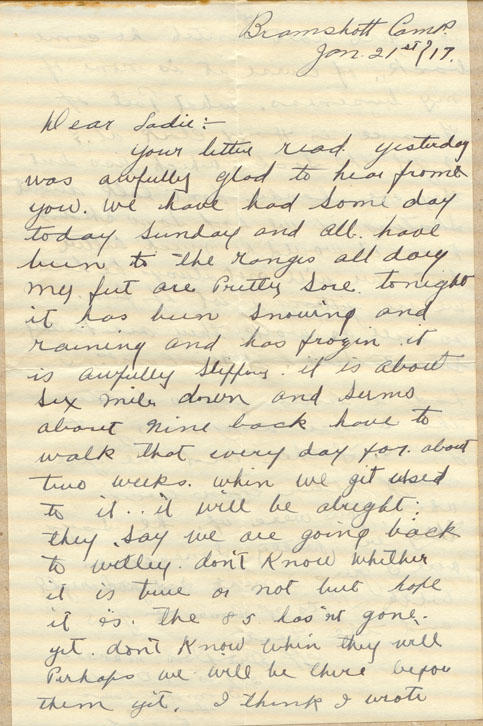 Bramshott Camp.
Jan. 21st/17.
Dear Sadie:-
Your letter read yesterday
was awfully glad to hear from
you. We have had some day
today Sunday and all. have
been to the ranges all day
my feet are Pretty Sore tonight
it has been snowing and
raining and has frozin it
is awfully slippry. it is about
Six miles down and seems
about nine back have to
walk that every day for about
two weeks. when we git used
to it.. it will be alright.
they say we are going back
to witley. don't Know whether
it is true or not but hope
it is. the 85 has'nt gone.
yit. don't Know when they will
Perhaps we will be there before
them yit. I think I wrote